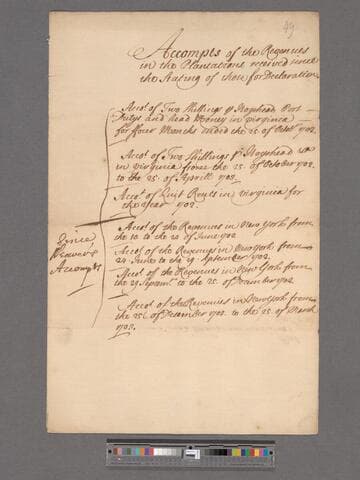 49
Accompts of the Revenues
in the Plantations received since
the Stating of those for Declaration
Accot. of Two Shillings P Hogshead Port
Dutys and head Money in Virginia
for ffour Months ended the 25 of Octobr. 1702.
Accot. of Two Shillings P Hogshead
in Virginia from the 25. of October 1702.
to the 25. of Aprill 1703.
Accot. of Quit Rents in Virginia for
the Year 1702.
Accot. of the Revenues in New York from
the 10 to the 24 of June 1702
Accot. of the Revenues in New York from
24 June to the 29 September 1702.
Accot. of the Revenues in New York from
the 29 Septembr. to the 25. of December 1702
Accot. of the Revenues in New York from
the 25. of December 1702. to the 25. of March
1703.
Since
Accompts